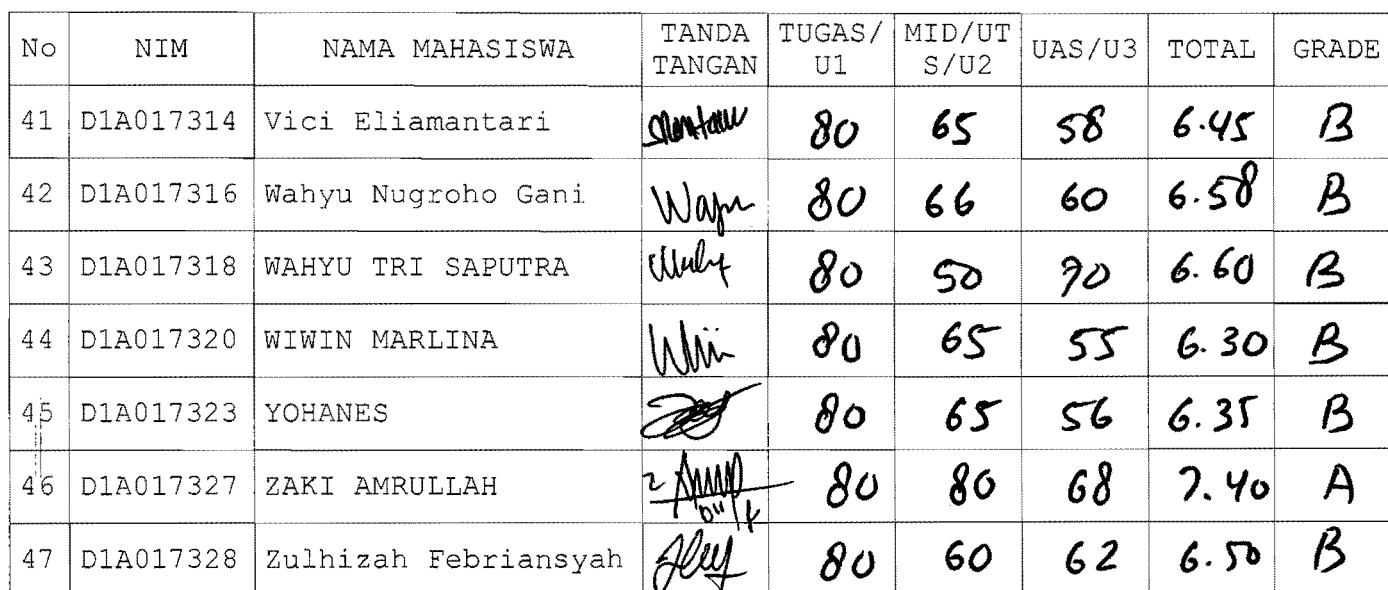 No NIM NAMA MAHASISWA TANDA TANGAN TUGAS/U1 MID/UTS/U2 UAS/U3 TOTAL GRADE
41 D1A017314 Vici Eliamantari 80 65 58 6.45 B
42 D1A017316 Wahyu Nugroho Gani 80 66 60 6.58 B
43 D1A017318 WAHYU TRI SAPUTRA 80 50 70 6.60 B
44 D1A017320 WIWIN MARLINA 80 65 55 6.30 B
45 D1A017323 YOHANES 80 65 56 6.35 B
46 D1A017327 ZAKI AMRULLAH 80 80 68 7.40 A
47 D1A017328 Zulhizah Febriansyah 80 60 62 6.50 B